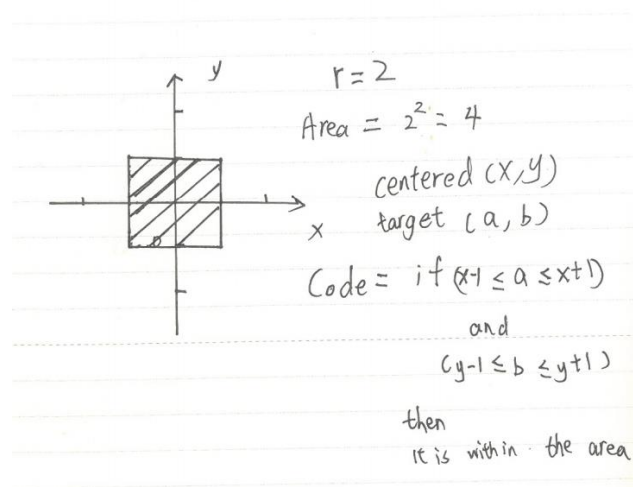 y
r=2
Area = 2² = 4
centered (x,y)
x
target (a,b)
Code = if (x-1 ≤ a ≤ x+1)
and
(y-1 ≤ b ≤ y+1)
then
it is within the area